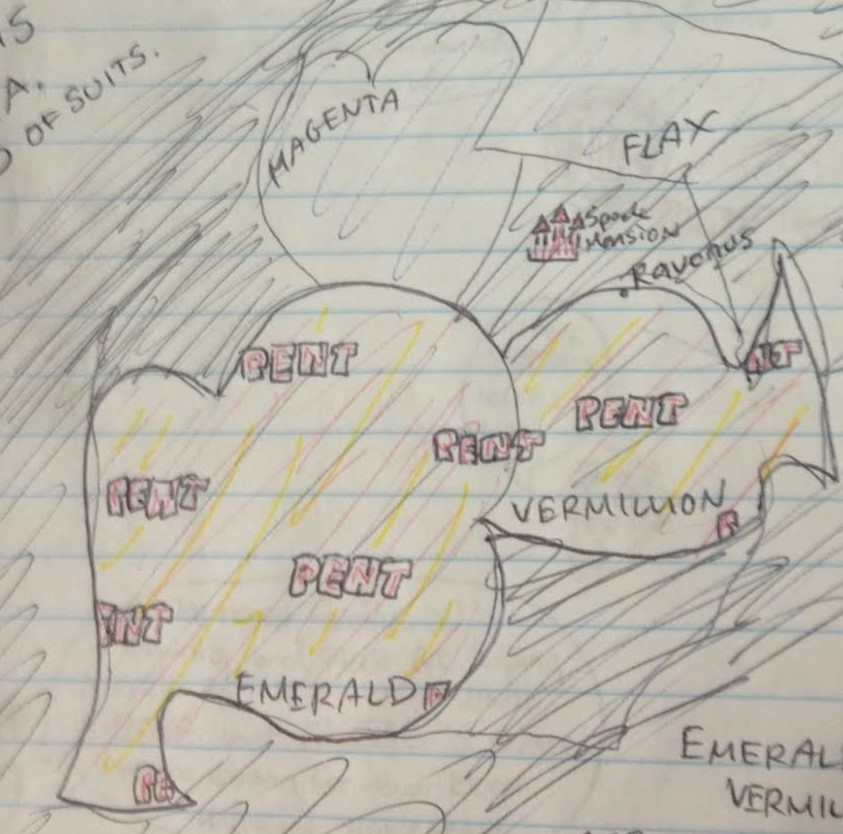 OF SUITS.
MAGENTA
FLAX
Spade
Mansion
Ravonus
PENT
NT
PENT
PENT
PENT
VERMILLION
PENT
ENT
EMERALD
PE
EMERAL
VERMIL